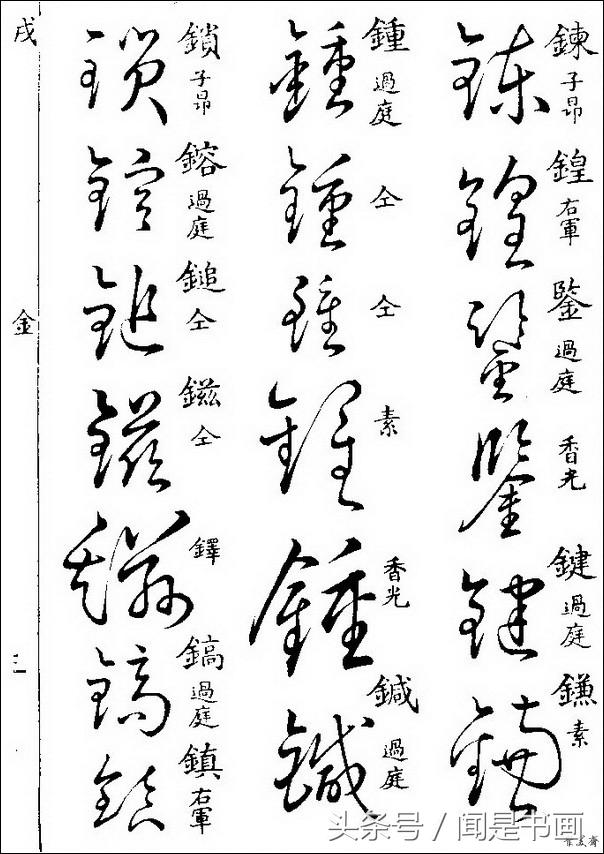 鍊 子昂
鍠 右軍
鑒 過庭
香光
鍵 過庭
鎌 素
鍾 過庭
仝
仝
素
香光
鍼 過庭
鎖 子昂
鎔 過庭
鎚 仝
鎡 仝
鐸
鎬 過庭
鎮 右軍
戌
金
三
头条号 / 闻是书画